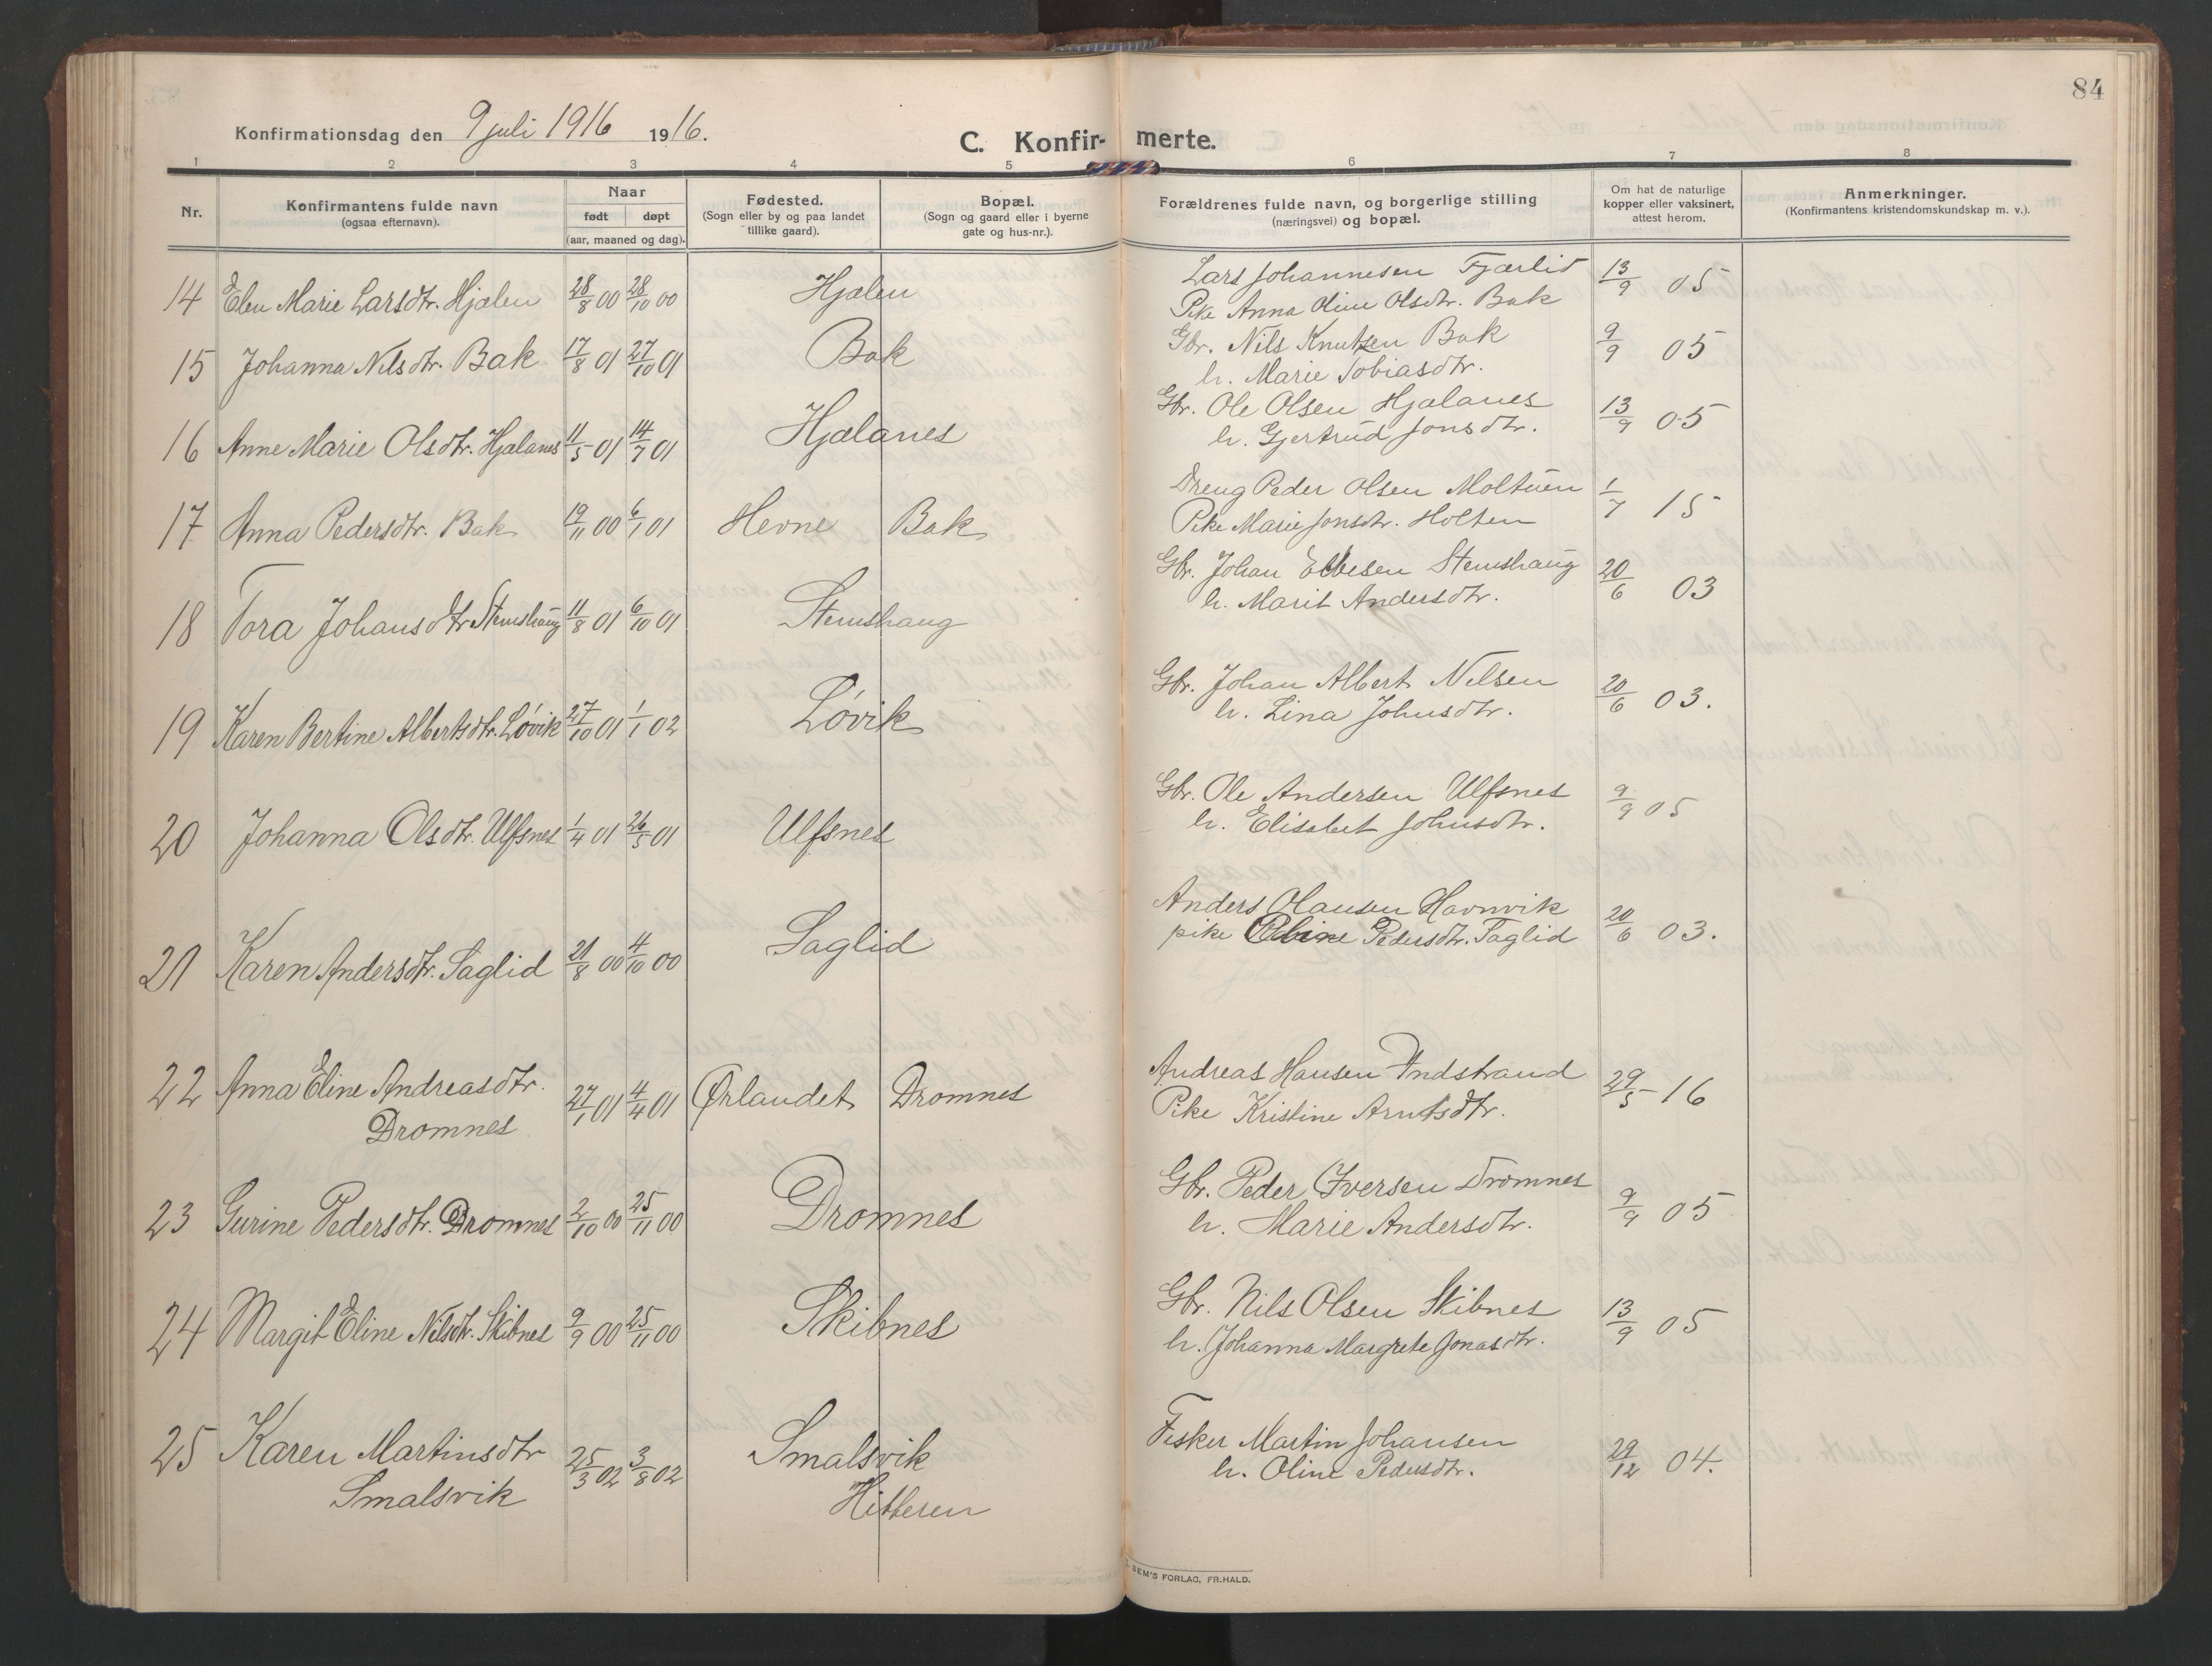 84
Konfirmationsdag den 9 juli 1916 1916.
C. Konfir- merte.
1 2 3 4 5 6 7 8
Nr.
Konfirmantens fulde navn
(ogsaa efternavn).
Naar
født døpt
(aar, maaned og dag).
Fødested.
(Sogn eller by og paa landet
tillike gaard).
Bopæl.
(Sogn og gaard eller i byerne
gate og hus-nr.).
Forældrenes fulde navn, og borgerlige stilling
(næringsvei) og bopæl.
Om hat de naturlige
kopper eller vaksinert,
attest herom.
Anmerkninger.
(Konfirmantens kristendomskundskap m. v.).
14 Elen Marie Larsdtr. Hjælen 28/8 00 28/10 00 Hjælen
Lars Johannesen Fjærlid 13/9 05
Pike Anna Oline Olsdtr. Bak
15 Johanna Nilsdtr. Bak 17/8 01 27/10 01 Bak
Gbr. Nils Knutzen Bak 9/9 05
h. Marie Tobiasdtr.
16 Anne Marie Olsdtr. Hjælanes 11/5 01 14/7 01 Hjælanes
Gbr. Ole Olsen Hjælanes 13/9 05
h. Gjertrud Jonsdtr.
17 Anna Pedersdtr. Bak 19/11 00 6/1 01 Hevne Bak
Dreng Peder Olsen Moltuen 1/7 15
Pike Marie Jonsdtr. Holten
18 Tora Johansdtr Stemshaug 11/8 01 6/10 01 Stemshaug
Gbr. Johan Ellevsen Stemshaug 20/6 03
h. Marit Andersdtr.
19 Karen Bertine Albertsdtr. Løvik 27/10 01 1/1 02 Løvik
Gbr. Johan Albert Nilsen 20/6 03.
h. Lina Johnsdtr.
20 Johanna Olsdtr. Ulfsnes 1/4 01 26/5 01 Ulfsnes
Gbr. Ole Andersen Ulfsnes 9/9 05
h. Elisabet Johnsdtr.
21 Karen Andersdtr. Saglid 21/8 00 4/10 00 Saglid
Anders Olausen Havnvik 20/6 03.
pike Oline Pedersdtr. Saglid
22 Anna Eline Andreasdtr.
Dromnes 27/1 01 4/4 01 Ørlandet Dromnes
Andreas Hansen Indstrand 29/5 16
Pike Kristine Arntsdtr.
23 Gurine Pedersdtr. Dromnes 2/10 00 25/11 00 Dromnes
Gbr. Peder Iversen Dromnes 9/9 05
h. Marie Andersdtr.
24 Margit Eline Nilsdtr. Skibnes 9/9 00 25/11 00 Skibnes
Gbr. Nils Olsen Skibnes 13/9 05
h. Johanna Margrete Jonasdtr.
25 Karen Martinsdtr
Smalsvik 25/3 02 3/8 02 Smalsvik
Hitteren
Fisker Martin Johansen 29/12 04.
h. Oline Pedersdtr.
SEM'S FORLAG, FR.HALD.